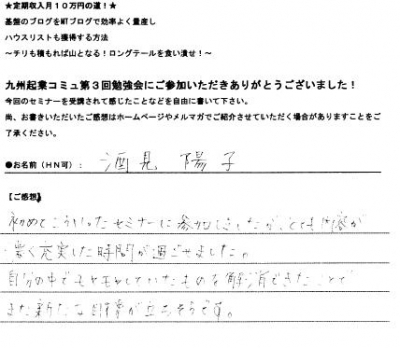 ★定期収入月１０万円の道！★
基盤のブログをMTブログで効率よく量産し
ハウスリストも獲得する方法
～チリも積もれば山となる！ロングテールを食い潰せ！～
九州起業コミュ第３回勉強会にご参加いただきありがとうございました！
今回のセミナーを受講されて感じたことなどを自由に書いて下さい。
尚、お書きいただいたご感想はホームページやメルマガでご紹介させていただく場合がありますことをご
了承ください。
●お名前（HN可）： 酒見 陽子
【ご感想】
初めてこういったセミナーに参加しましたが、とても内容が
濃く充実した時間が過ごせました。
自分の中でモヤモヤしていたものを解消できたことで
また新たな目標が立ちそうです。